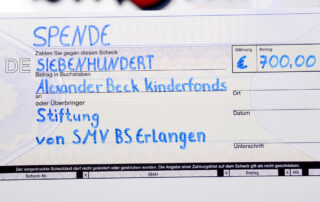 SPENDE
Zahlen Sie gegen diesen Scheck
Währung Betrag
DE SIEBENHUNDERT € 700,00
Betrag in Buchstaben
Alexander Beck Kinderfonds
an Ort
oder Überbringer
Stiftung Datum
von SMV BS Erlangen
Unterschrift
Der vorgedruckte Schecktext darf nicht geändert oder gestrichen werden. Die Angabe einer Zahlungsfrist auf dem Scheck gilt als nicht geschrieben.
Scheck-Nr. X IBAN X Betrag X